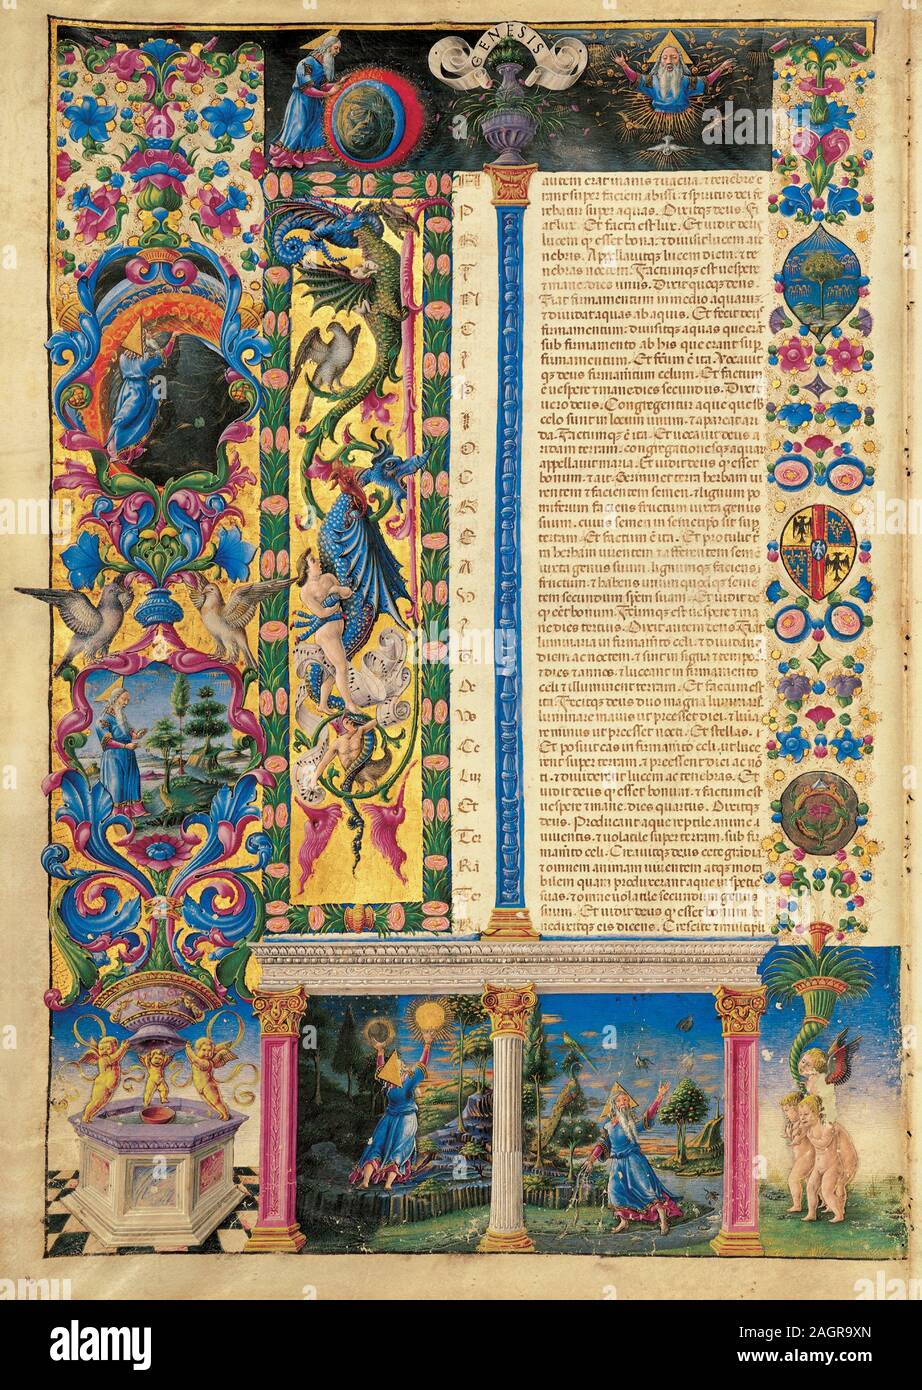 GENESIS
IN
P
R
I
N
C
I
P
I
O
C
R
E
A
V
I
T
De
Vs
Ce
Lu
Et
Te
RA
Te
autem erat inanis & uacua. & tenebre e
rant super faciem abissi. & spiritus dei fe
rebatur super aquas. Dixitqз deus. Fi
at lux. Et facta est lux. Et uidit deus
lucem qз esset bona: & diuisit lucem a te
nebris. Appellauitqз lucem diem: & te
nebras noctem. Factumqз est uespere
& mane. dies unus. Dixit quoqз deus.
Fiat firmamentum in medio aquarum:
& diuidat aquas ab aquis. Et fecit deus
firmamentum: diuisitqз aquas que erant
sub firmamento ab his que erant sup
firmamentum. Et factum e ita. Vocauit
qз deus firmamentum celum. Et factum
e uespere & mane. dies secundus. Dixit
uero deus. Congregentur aque que sub
celo sunt in locum unum: & apareat ari
da. Factumqз e ita. Et uocauit deus a
ridam terram: congregationesqз aquarum
appellauit maria. Et uidit deus qз esset
bonum. & ait. Germinet terra herbam ui
rentem & facientem semen: & lignum po
miferum faciens fructum iuxta genus
suum. cuius semen in semetipso sit sup
terram. Et factum e ita. Et protulit terra
herbam uirentem & afferentem semen
iuxta genus suum. lignumqз faciens
fructum: & habens unum quodqз semen
tem secundum spem suam. Et uidit deus
qз eet bonum. Factumqз est uespere & ma
ne dies tertius. Dixit autem deus. Fiant
luminaria in firmamento celi: & diuidant
diem ac noctem. & sint in signa & tempora
dies & annos: & luceant in firmamento
celi & illuminent terram. Et factum est
ita. Fecitqз deus duo magna luminaria
luminare maius ut preesset diei: & lumina
re minus ut preesset nocti. Et stellas.
Et posuit eas in firmamento celi: ut luce
rent super terram. & preessent diei ac no
cti. & diuiderent lucem ac tenebras. Et
uidit deus qз esset bonum. & factum est
uespere & mane. dies quartus. Dixitqз
deus. Producant aque reptile anime
uiuentis: & uolatile super terram. sub fir
mamento celi. Creauitqз deus cete grandia
& omnem animam uiuentem atqз mota
bilem quam produxerant aque in species
suas. & omne uolatile secundum genus
suum. Et uidit deus qз esset bonum. be
nedixitqз eis dicens. Crescite & multipli
alamy
Image ID: 2AGR9XN
www.alamy.com